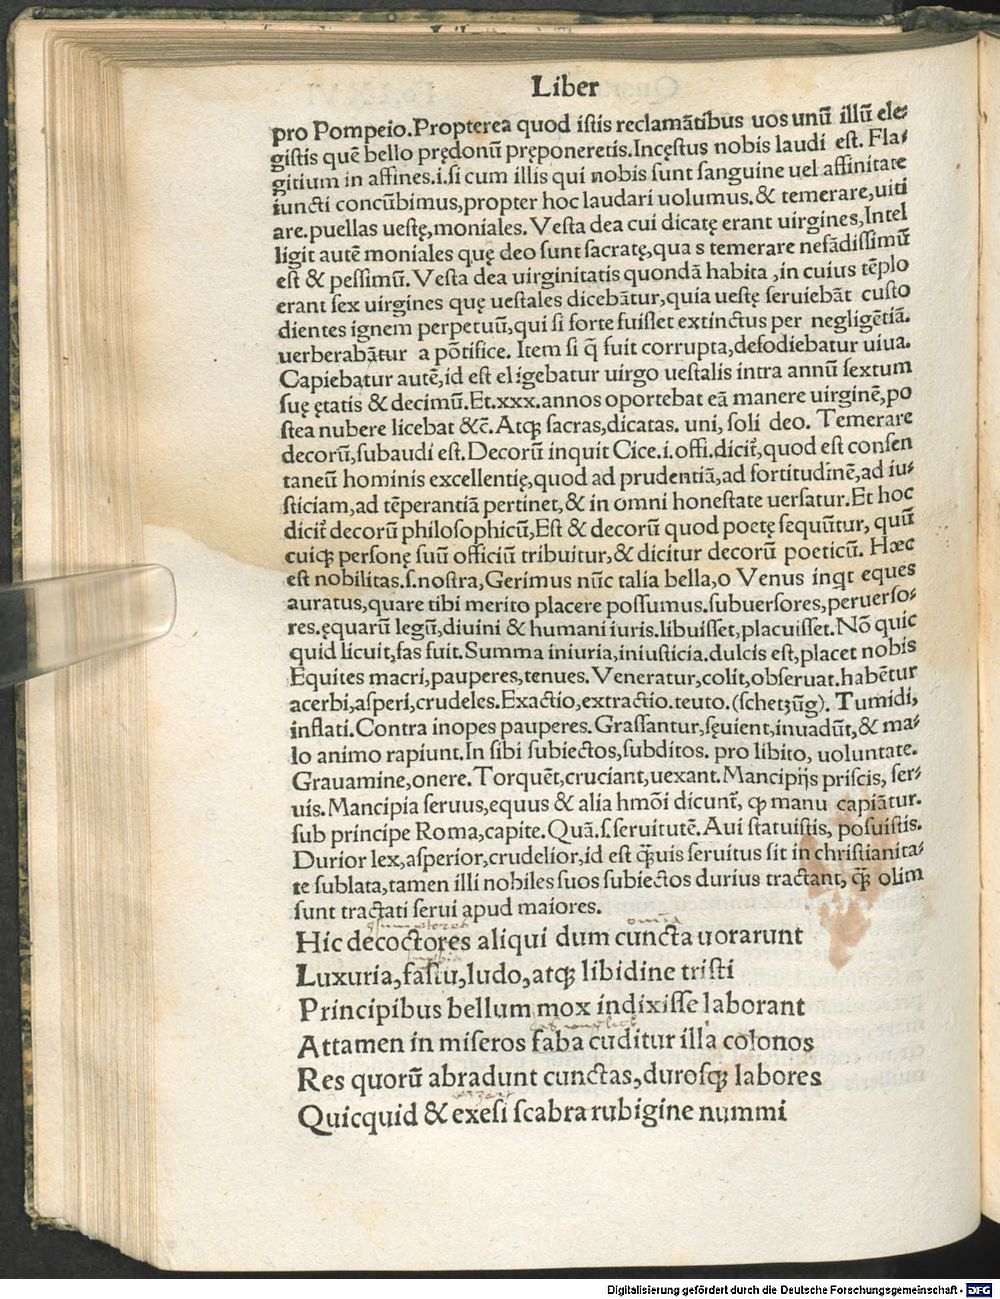 Liber
pro Pompeio.Propterea quod istis reclamãtibus uos unũ illũ ele⸗
gistis quẽ bello prędonũ pręponeretis.Incęstus nobis laudi est. Fla⸗
gitium in affines.i.si cum illis qui nobis sunt sanguine uel affinitate
iuncti concũbimus,propter hoc laudari uolumus.& temerare,uiti
are.puellas uestę,moniales. Vesta dea cui dicatę erant uirgines,Intel
ligit autẽ moniales quę deo sunt sacratę,qua s temerare nefãdissimũ
est & pessimũ. Vesta dea uirginitatis quondã habita ,in cuius tẽplo
erant sex uirgines quę uestales dicebãtur,quia uestę seruiebãt custo
dientes ignem perpetuũ,qui si forte fuisset extinctus per negligẽtiã.
uerberabãtur a põtifice. Item si q̃ fuit corrupta,defodiebatur uiua.
Capiebatur autẽ,id est eligebatur uirgo uestalis intra annũ sextum
suę ętatis & decimũ.Et.xxx.annos oportebat eã manere uirginẽ,po
stea nubere licebat &c̃. Atqꝫ sacras,dicatas. uni, soli deo. Temerare
decorũ,subaudi est.Decorũ inquit Cice.i.offi.dicit᷑,quod est consen
taneũ hominis excellentię,quod ad prudentiã,ad fortitudinẽ,ad iu⸗
sticiam,ad tẽperantiã pertinet,& in omni honestate uersatur.Et hoc
dicit᷑ decorũ philosophicũ,Est & decorũ quod poetę sequũtur, quũ
cuiqꝫ personę suũ officiũ tribuitur,& dicitur decorũ poeticũ. Hæc
est nobilitas.s.nostra,Gerimus nũc talia bella,o Venus inqt eques
auratus,quare tibi merito placere possumus.subuersores,peruerso⸗
res.ęquarũ legũ,diuini & humani iuris.libuisset,placuisset.Nõ quic
quid licuit,fas fuit.Summa iniuria,iniusticia.dulcis est,placet nobis
Equites macri,pauperes,tenues. Veneratur,colit,obseruat.habẽtur
acerbi,asperi,crudeles.Exactio,extractio.teuto.(schetzũg). Tumidi,
inflati.Contra inopes pauperes.Grassantur,sęuient,inuadũt,& ma⸗
lo animo rapiunt.In sibi subiectos,subditos. pro libito, uoluntate.
Grauamine,onere. Torquẽt,cruciant,uexant.Mancipijs priscis, ser⸗
uis.Mancipia seruus,equus & alia hmõi dicunt᷑, ꝙ manu capiãtur.
sub principe Roma,capite.Quã.s.seruitutẽ.Aui statuistis, posuistis.
Durior lex,asperior,crudelior,id est q̃ꝫuis seruitus sit in christianita⸗
te sublata,tamen illi nobiles suos subiectos durius tractant, q̃ꝫ olim
sunt tractati serui apud maiores.
omnia
Hic decoctores aliqui dum cuncta uorarunt
Luxuria,fastu,ludo,atqꝫ libidine tristi
Principibus bellum mox indixisse laborant
Attamen in miseros faba cuditur illa colonos
Res quorũ abradunt cunctas,durosqꝫ labores
Quicquid & exesi scabra rubigine nummi
Digitalisierung gefördert durch die Deutsche Forschungsgemeinschaft - DFG